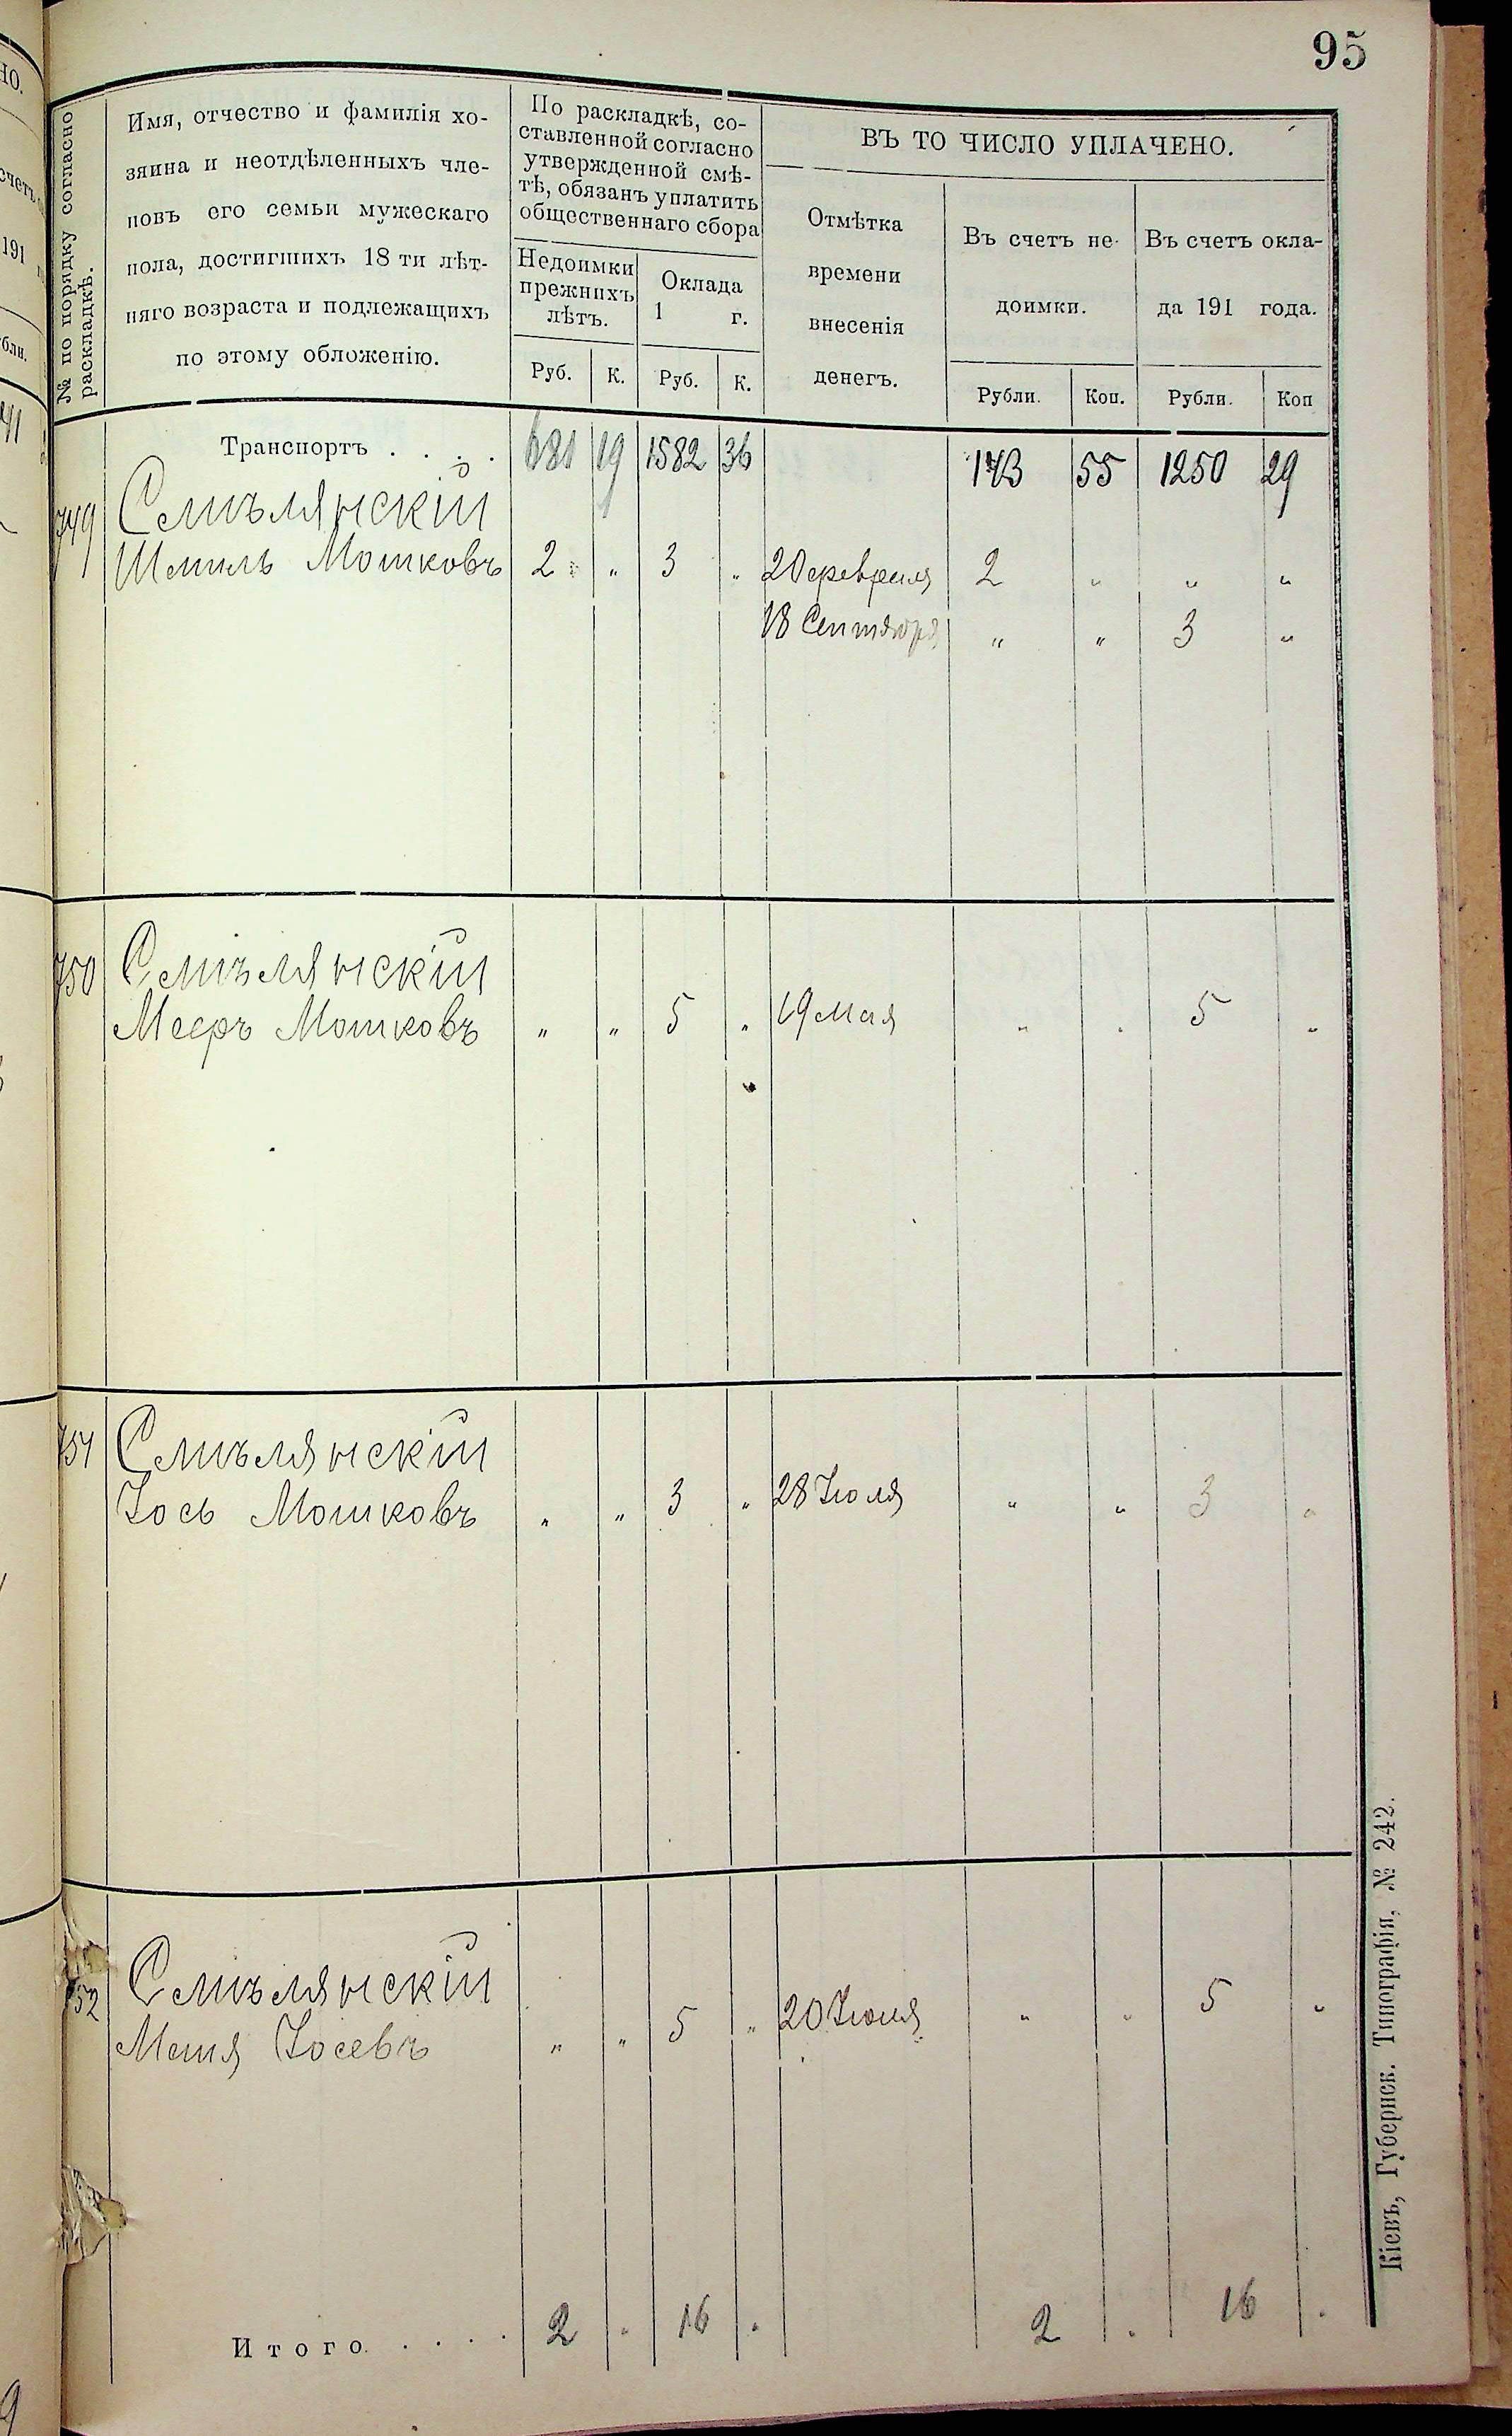 95
№ по порядку согласно раскладкѣ.
Имя, отчество и фамилія хо-
зяина и неотдѣленныхъ чле-
новъ его семьи мужескаго
пола, достигшихъ 18 ти лѣт-
няго возраста и подлежащихъ
по этому обложенію.
По раскладкѣ, со-
ставленной согласно
утвержденной смѣ-
тѣ, обязанъ уплатить
общественнаго сбора
Недоимки
прежнихъ
лѣтъ.
Оклада
1 г.
Руб. К. Руб. К.
ВЪ ТО ЧИСЛО УПЛАЧЕНО.
Отмѣтка
времени
внесенія
денегъ.
Въ счетъ не-
доимки.
Въ счетъ окла-
да 191 года.
Рубли. Коп. Рубли. Коп
Транспортъ . . . . 681 19 1582 36 143 55 1250 29
749 Смѣлянскій
Шмиль Мошковъ 2 " 3 " 20 февраля 2 " " "
18 Сентября " " 3 "
750 Смѣлянскій
Мееръ Мошковъ " " 5 " 19 Мая " " 5 "
751 Смѣлянскій
Іось Мошковъ " " 3 " 28 Іюля " " 3 "
752 Смѣлянскій
Іосевъ " " 5 " 20 " " 5 "
Итого . . . . 2 " 16 " 2 " 16 "
Кіевъ, Губернск. Типографія, № 242.